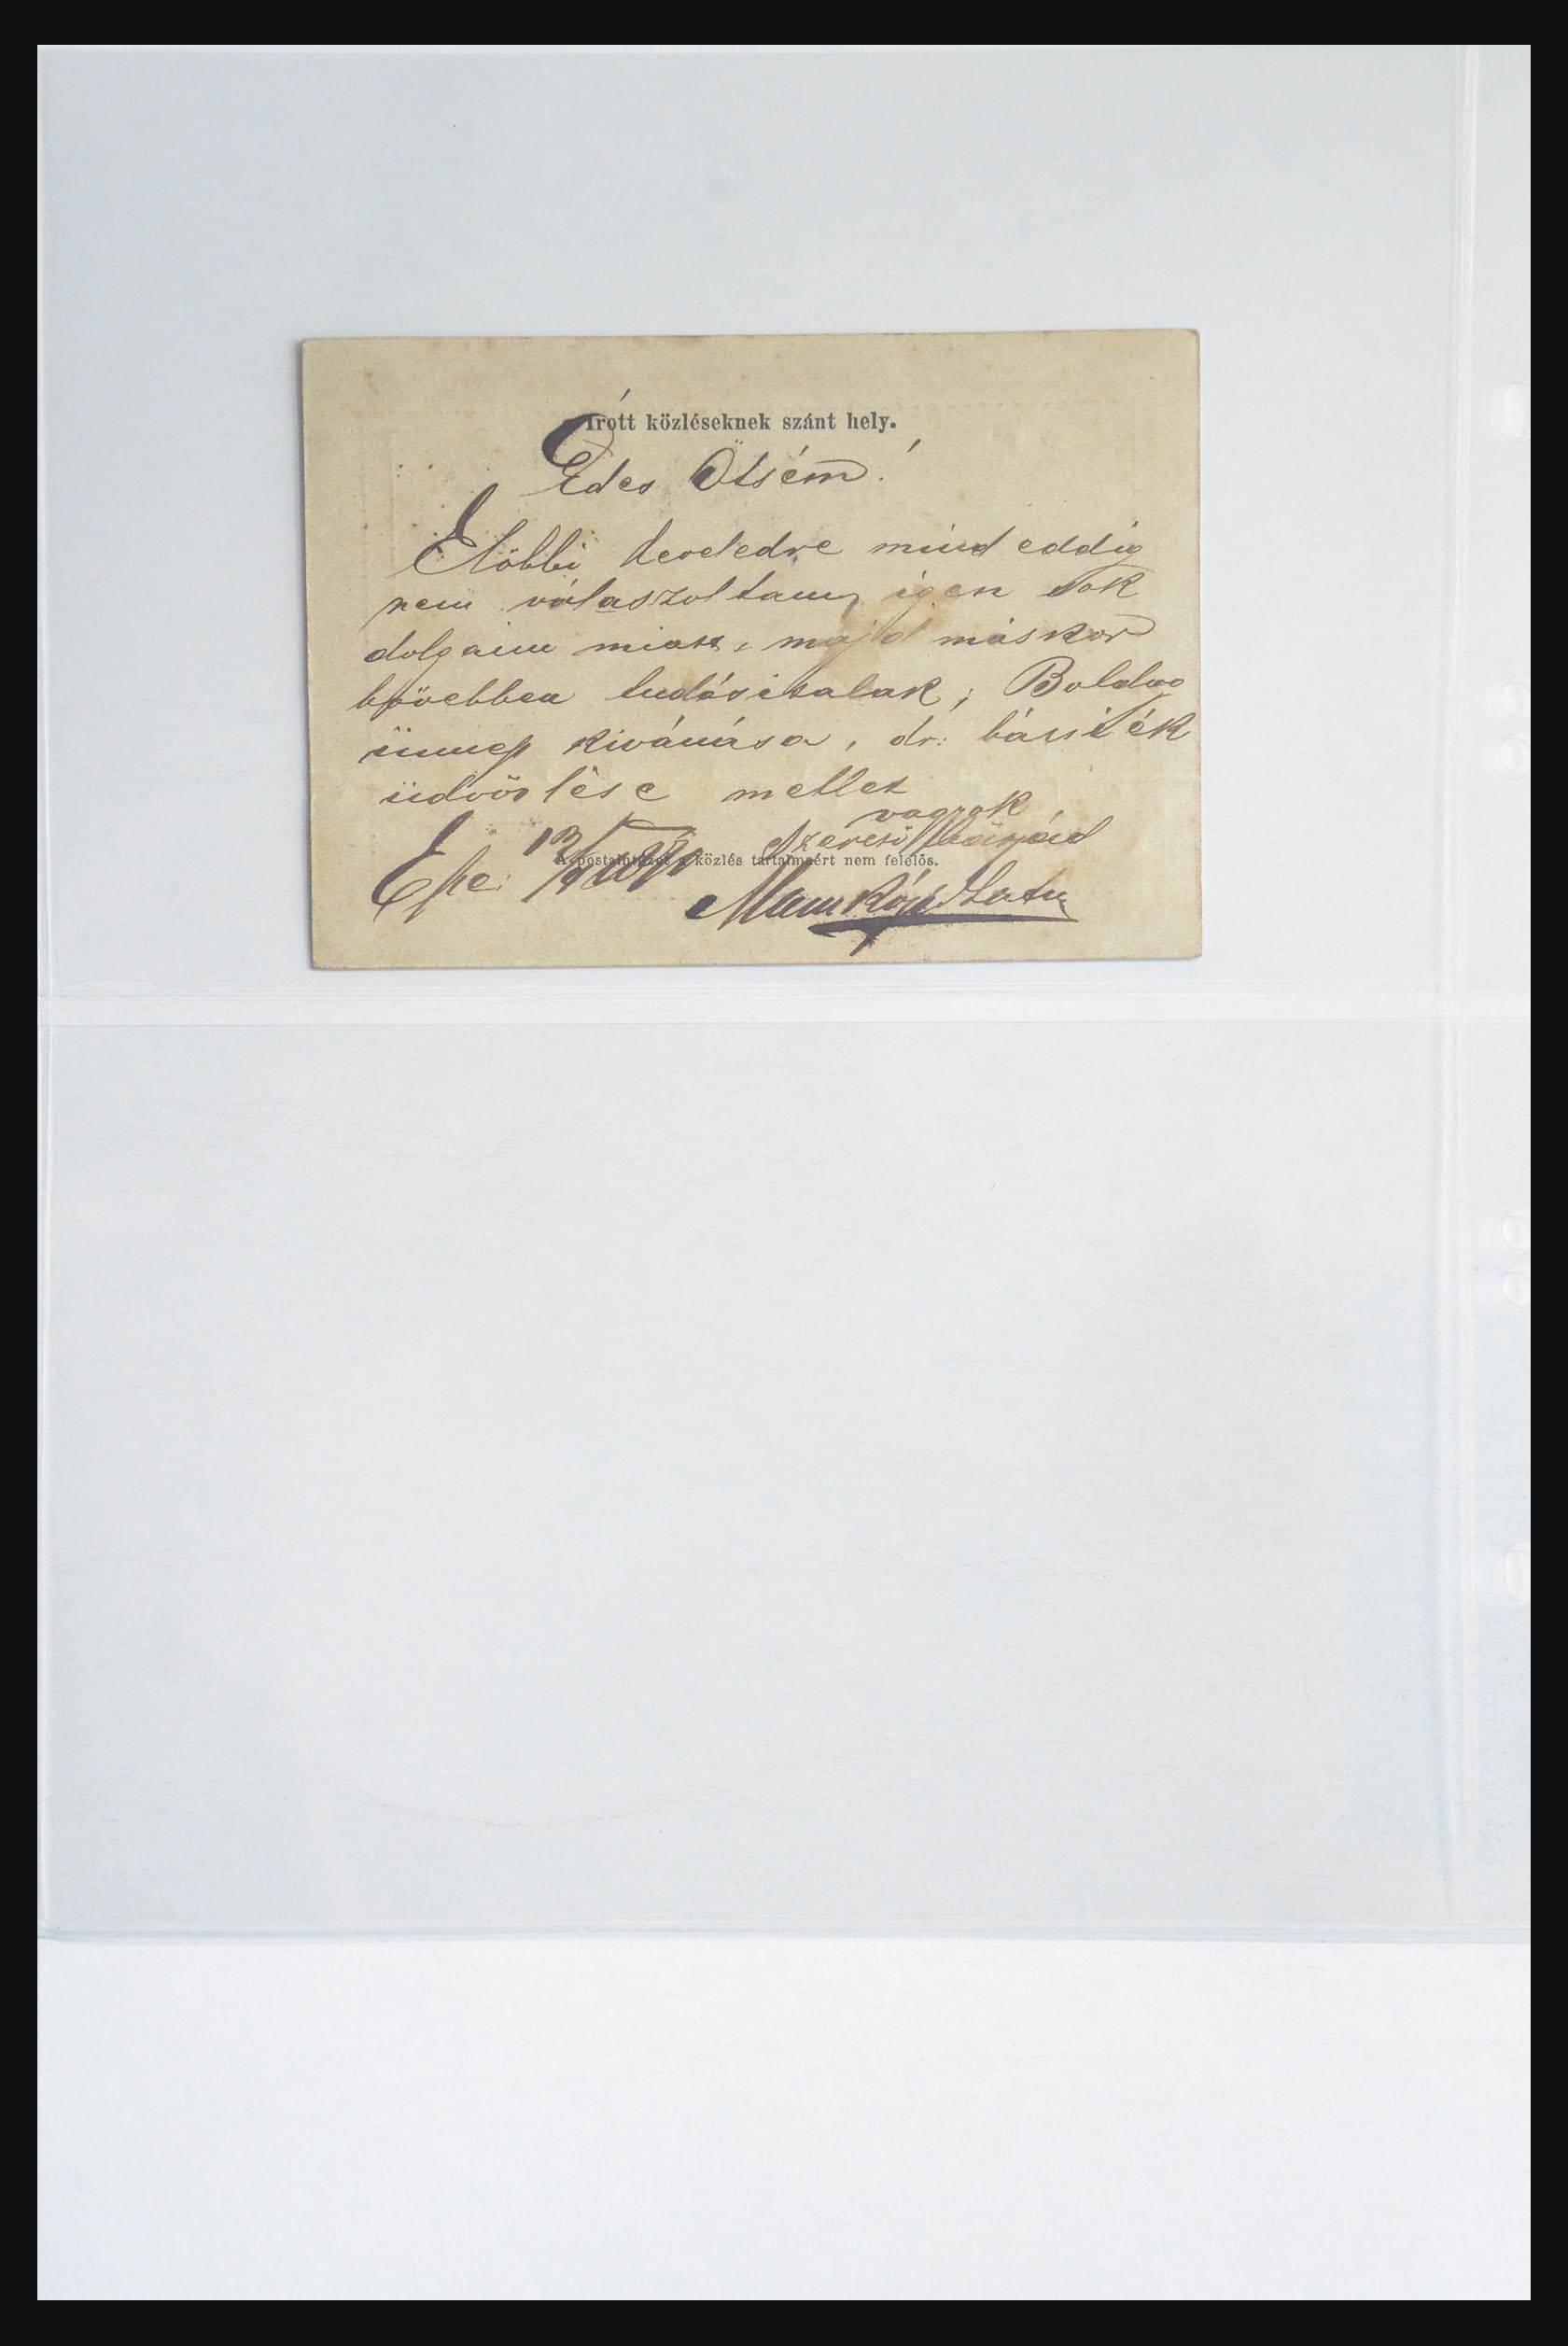 Írott közléseknek szánt hely.
Édes Ötsém!
Előbbi leveledre mind eddig
nem válaszoltam, igen sok
dolgaim miatt, majd máskor
bővebben tudósitalak; Boldog
ünnep kivánása, dr: bácsiék
üdvözlése mellet
vagyok
Szerető
A postaintézet a közlés tartalmaért nem felelős.
Epe: 13/9